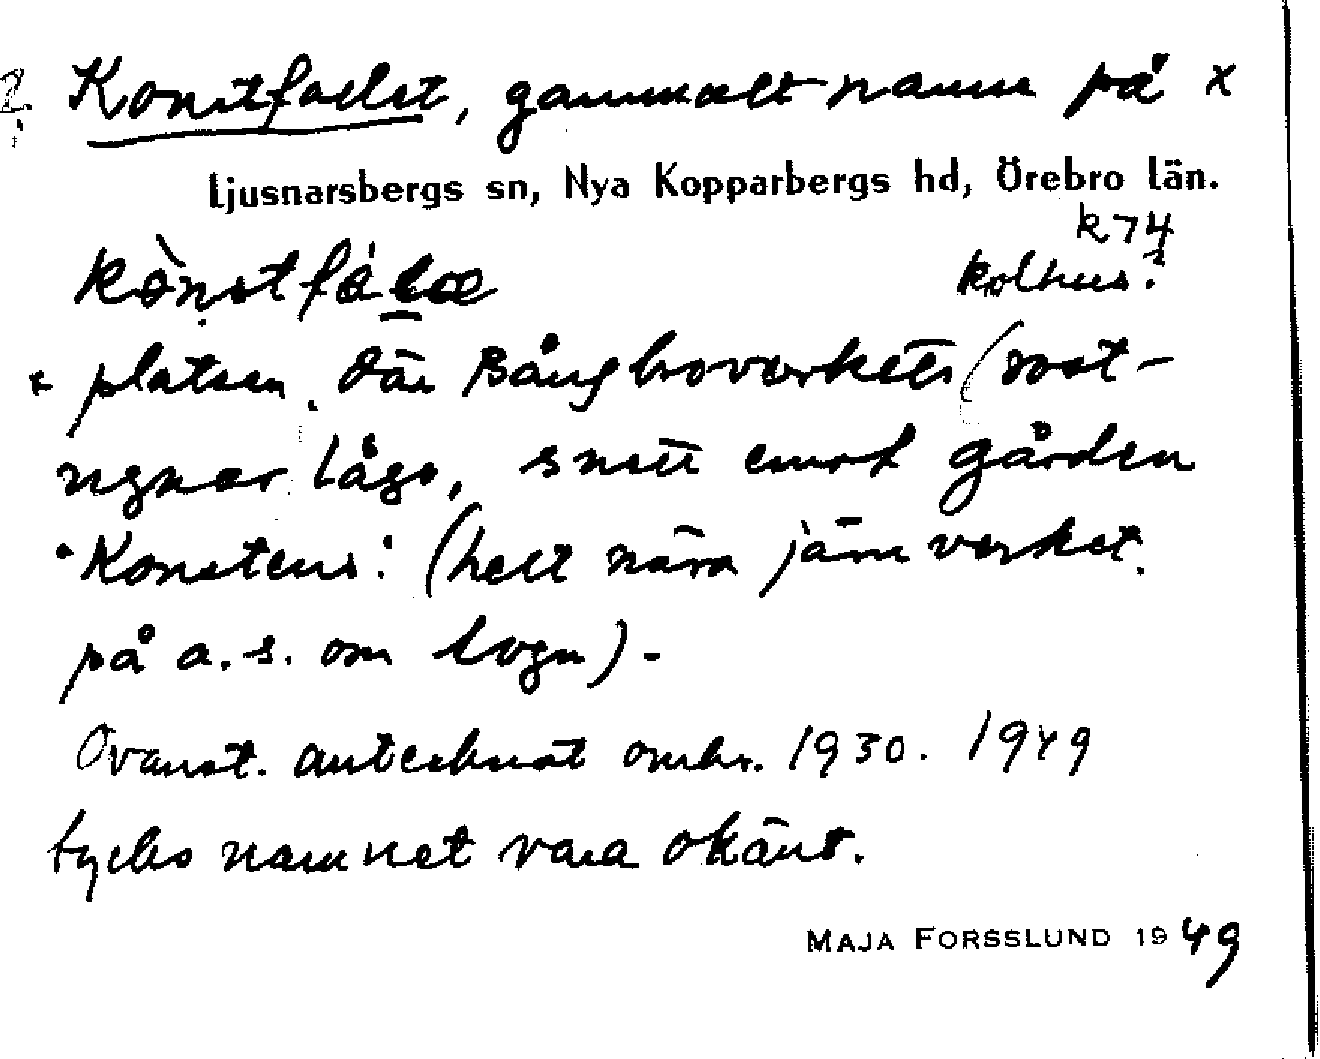 ? Konstfallet, gammalt namn på x
Ljusnarsbergs sn, Nya Kopparbergs hd, Örebro län.
k74
kolhus?
x platsen där Bångbroverkets (rost-
ugnar lågo, snett emot gården
"Konstens". (helt nära järnverket
på a. s. om tvgn) -
Ovanst. antecknat omkr. 1930. 1949
tycks namnet vara okänt.
MAJA FORSSLUND 1949